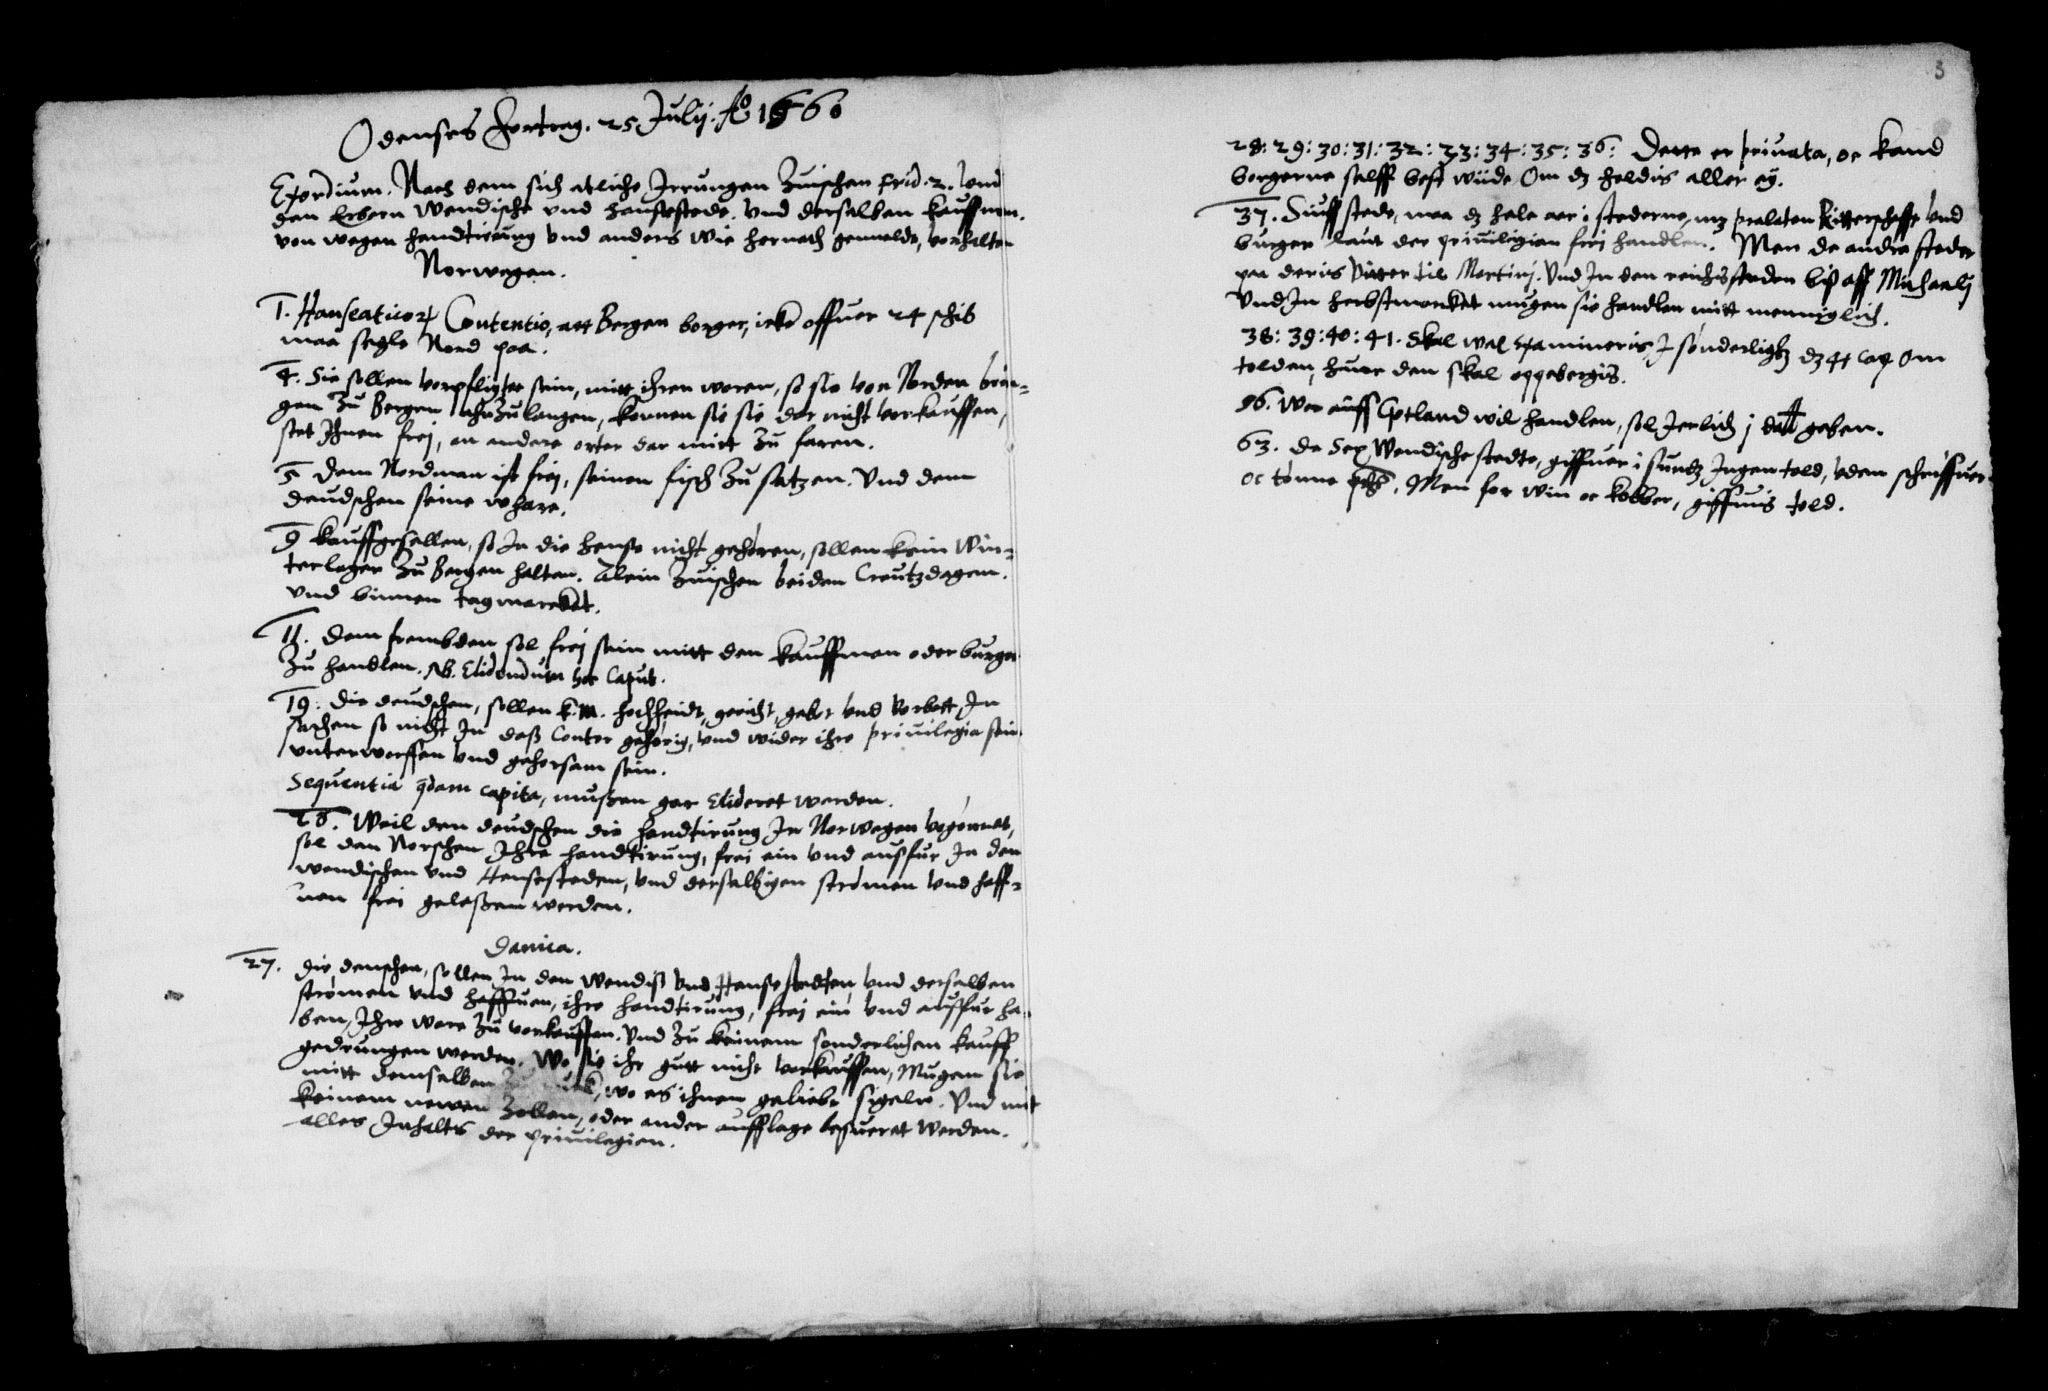 Odenses fortrag. 25 Julij. Ao 1560
Exordium. Nach dem sich atliche Jrrungen Zuischen frid. 2. vnd
den Erbern Wendische vnd hansestede. Vnd derselben kauffman.
von wegen handtirung vnd anders wie hernach gemelde, vorhalten
Norwegen.
1. Hanseaticorum Contentio, att Bergen borger, icke offuer 24 schib
maa segle Nord paa.
4. Sie sollen vorpflichtet sein, mitt ihren waren, so sie von Norden brin-
gen Zu Bergen ahnZulangen, konnen sie sie dar nicht vorkauffen,
stet Jhnen frej, an andere orter dar mitt Zu faren.
5 Dem Nordman ist frej, seinen fisch Zu satzen. Vnd dem
deudschen seine whare.
9 kauffgesellen, so Jn die hense nicht gehoren, sollen kein Win-
terlager Zu Bergen halten. Alein Zuischen beiden Creutzdagen.
vnd binnen tagmarckt.
11. Dem frembden sol frej sein mitt den kauffman oder burger
Zu handlen. NB. Elidendum hoc Caput.
19. Die deudschen, sollen k. M. hochheidt, gericht, gebot vnd Vorbott, Jn
sachen so nicht Jn daß Contor gehorig, vnd wider ihre priuilegia sein
vnterworffen vnd gehorsam sein.
Sequentia qdam capita, mußen gar Elideret werden.
26. Weil den deudschen die handtirung Jn Norwegen vogonnet,
sol den Norschen Jhre handtirung, frei ein vnd außfur Jn den
wendischen vnd Hensesteden, vnd derselbigen stromen vnd haff-
nen frei gelaßen werden.
Danica.
27. Die denschen, sollen Jn den Wendiß vnd Hanse stedten vnd derselben
stromen vnd haffnen, ihre handtirung, frej ein vnd außfur ha-
ben, Jhre ware Zu vorkauffen. Vnd Zu keinem sonderlichen kauff
gedrungen werden. Wo sie ihr gutt nicht vorkauffen, Mugen sie
mitt demselben Zu, wo es ihnen geliebt sigeln. Vnd mit
keinem newen Zollen, oder ander aufflage besueret werden.
alles Jnhalts der priuilegien.
3
28: 29: 30: 31: 32: 33: 34: 35: 36: Dette er priuata, oc kand
borgerne selff best wiide Om dz holdis aller ej.
37. Siuff stede, maa dz hele aar i stederne, mz prelaten Ritterschafft vnd
burger laut der priuiligien frei handlen. Men de andre steder
paa deris Vitter til Mortinj. Vnd Jn den reichssteden biß aff Michaelj
Vnd Jn herbstmarket mugen sie handlen mitt menniglich.
38: 39: 40: 41. Skal wal Examineris, J sonderlighz dz 41 cap Om
tolden, huore den skal oppebergis.
56. Wer auff Gotland wil handlen, sol Jerlich j geben.
63. De Sex Wendische stedte, giffuer i sundz Jngen told, vden schriffuer
oc tonne. Men for win oc kobber, giffuis told.